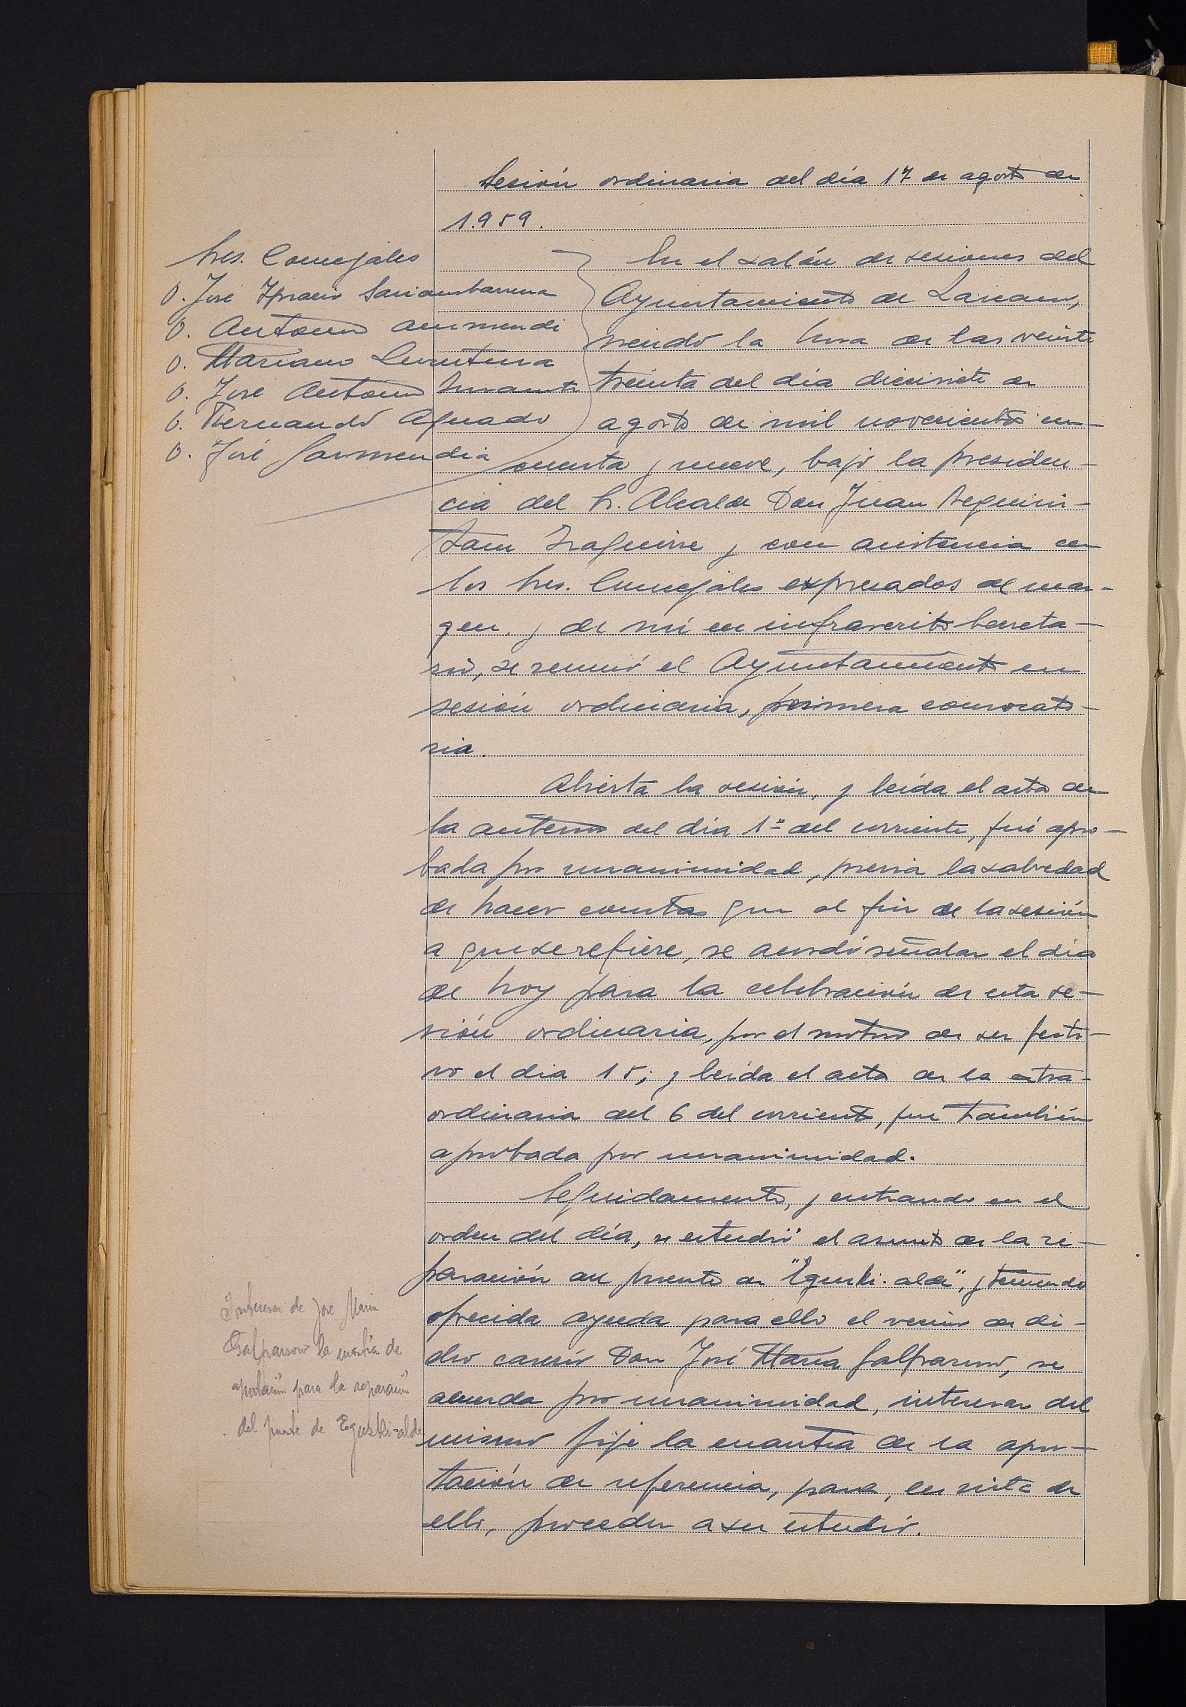 Sesión ordinaria del día 17 de agosto de
1.959.
Sres. Concejales
D. José Ignacio Sarasambarrena
D. Antonio Aurmendi
D. Mariano
D. José Antonio
D. Fernando Aguado
D. José Garmendia
En el salón de sesiones del
Ayuntamiento de Lazcano,
siendo la hora de las veinte
treinta del día diecisiete de
agosto de mil novecientos cin-
cuenta y nueve, bajo la presiden-
cia del Sr. Alcalde Don Juan
Izaguirre y con asistencia de
los Sres. Concejales expresados al mar-
gen, y de mí el infrascrito Secreta-
rio, se reunió el Ayuntamiento en
sesión ordinaria, primera convocato-
ria.
Abierta la sesión, y leída el acta de
la anterior del día 1º del corriente, fué apro-
bada por unanimidad, previa la salvedad
de hacer constar que al fin de la sesión
a que se refiere, se acordó señalar el día
de hoy para la celebración de esta se-
sión ordinaria, por el motivo de ser festi-
vo el día 15; y leída el acta de la extra-
ordinaria del 6 del corriente, fue también
aprobada por unanimidad.
Seguidamente, y entrando en el
orden del día, se estudió el asunto de la re-
paración del puente de "Eguski-alde", y teniendo
ofrecida ayuda para ello el vecino de di-
cho caserío Don José María Galparsoro, se
acuerda por unanimidad, interesar del
mismo fije la cuantía de la apor-
tación de referencia, para, en vista de
ello, proceder a su estudio.
Interesar de José María
Galparsoro la cuantía de
aportación para la reparación
del puente de Eguski-alde